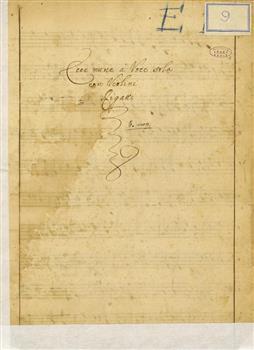 E
9
Ecce nunc a Voce sola
con Violini
Rigatti